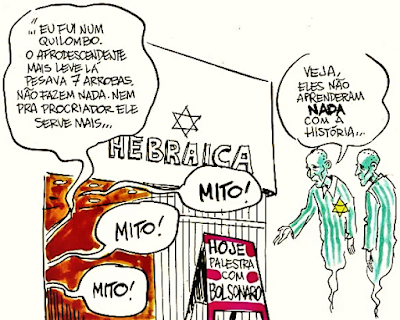 ... EU FUI NUM
QUILOMBO.
O AFRODESCENDENTE
MAIS LEVE LÁ
PESAVA 7 ARROBAS,
NÃO FAZEM NADA. NEM
PRA PROCRIADOR ELE
SERVE MAIS...
VEJA,
ELES NÃO
APRENDERAM
NADA
COM A
HISTÓRIA...
HEBRAICA
MITO!
MITO!
MITO!
HOJE
PALESTRA
COM
BOLSONARO